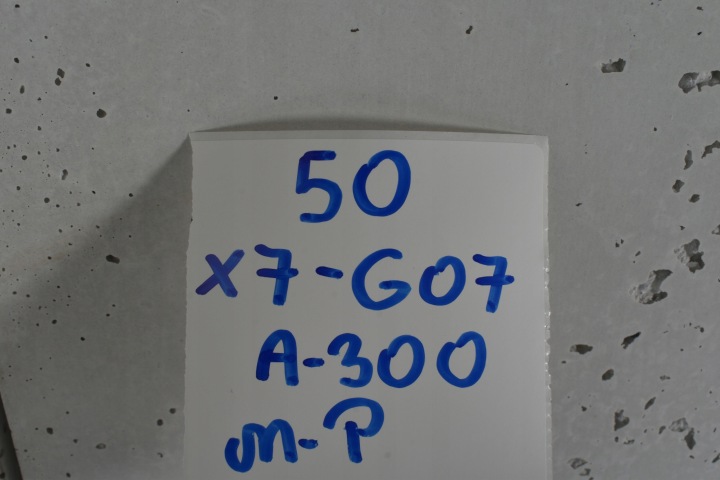 50
X7-G07
A-300
M-P